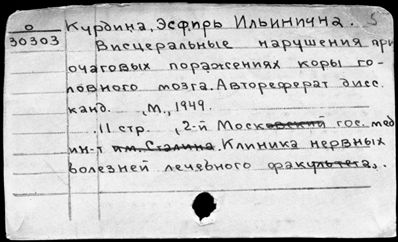 О
30303
Курдина, Эсфирь Ильинична. 5
Висцеральные нарушения при
очаговых поражениях коры го-
ловного мозга. Автореферат дисс.
канд. , М., 1949.
11 стр. , 2-й Московский гос. мед.
ин-т им. Сталина. Клиника нервных
болезней лечебного факультета.